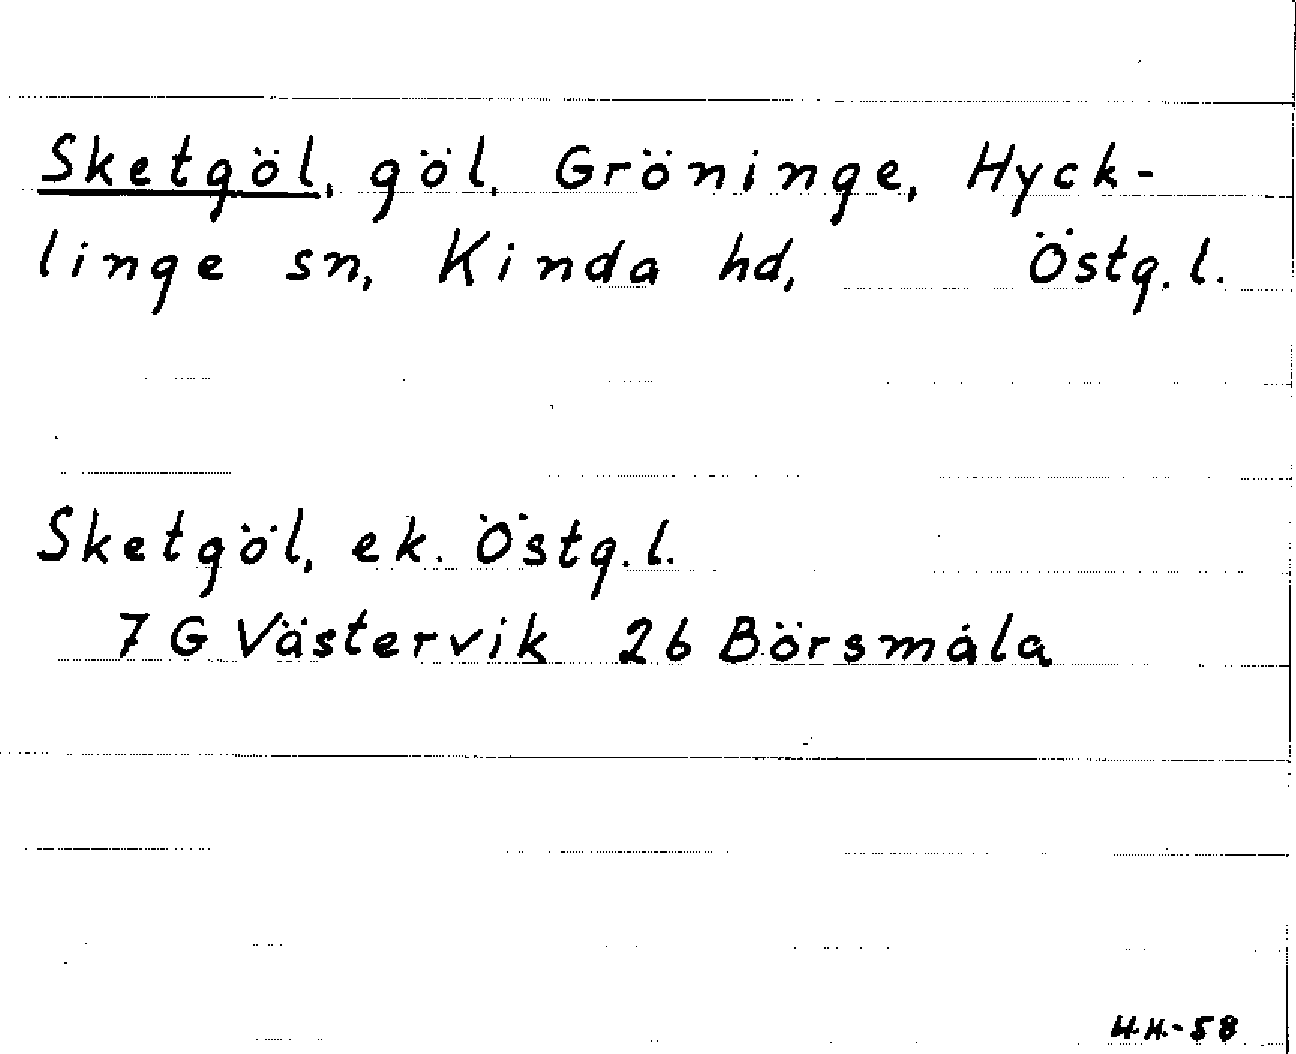 Sketgöl, göl, Gröninge, Hyck-
linge sn, Kinda hd, Östg. l.
Sketgöl, ek. Östg. l.
7 G Västervik 2b Börsmåla
HH-58